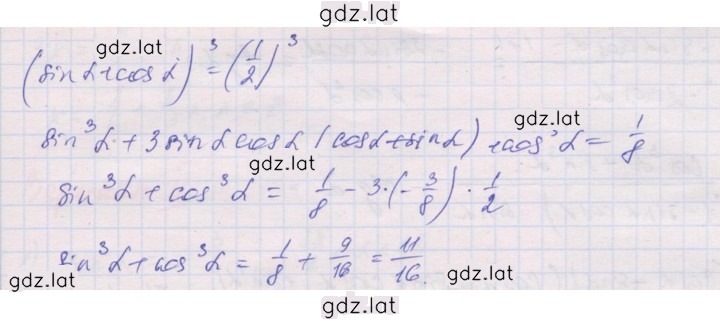 gdz.lat
gdz.lat
(sin α + cos α)³ = (1/2)³
sin³α + 3 sin α cos α (cos α + sin α) + cos³α = 1/8
gdz.lat
sin³α + cos³α = 1/8 - 3·(-3/8)·1/2
sin³α + cos³α = 1/8 + 9/16 = 11/16.
gdz.lat
gdz.lat
gdz.lat